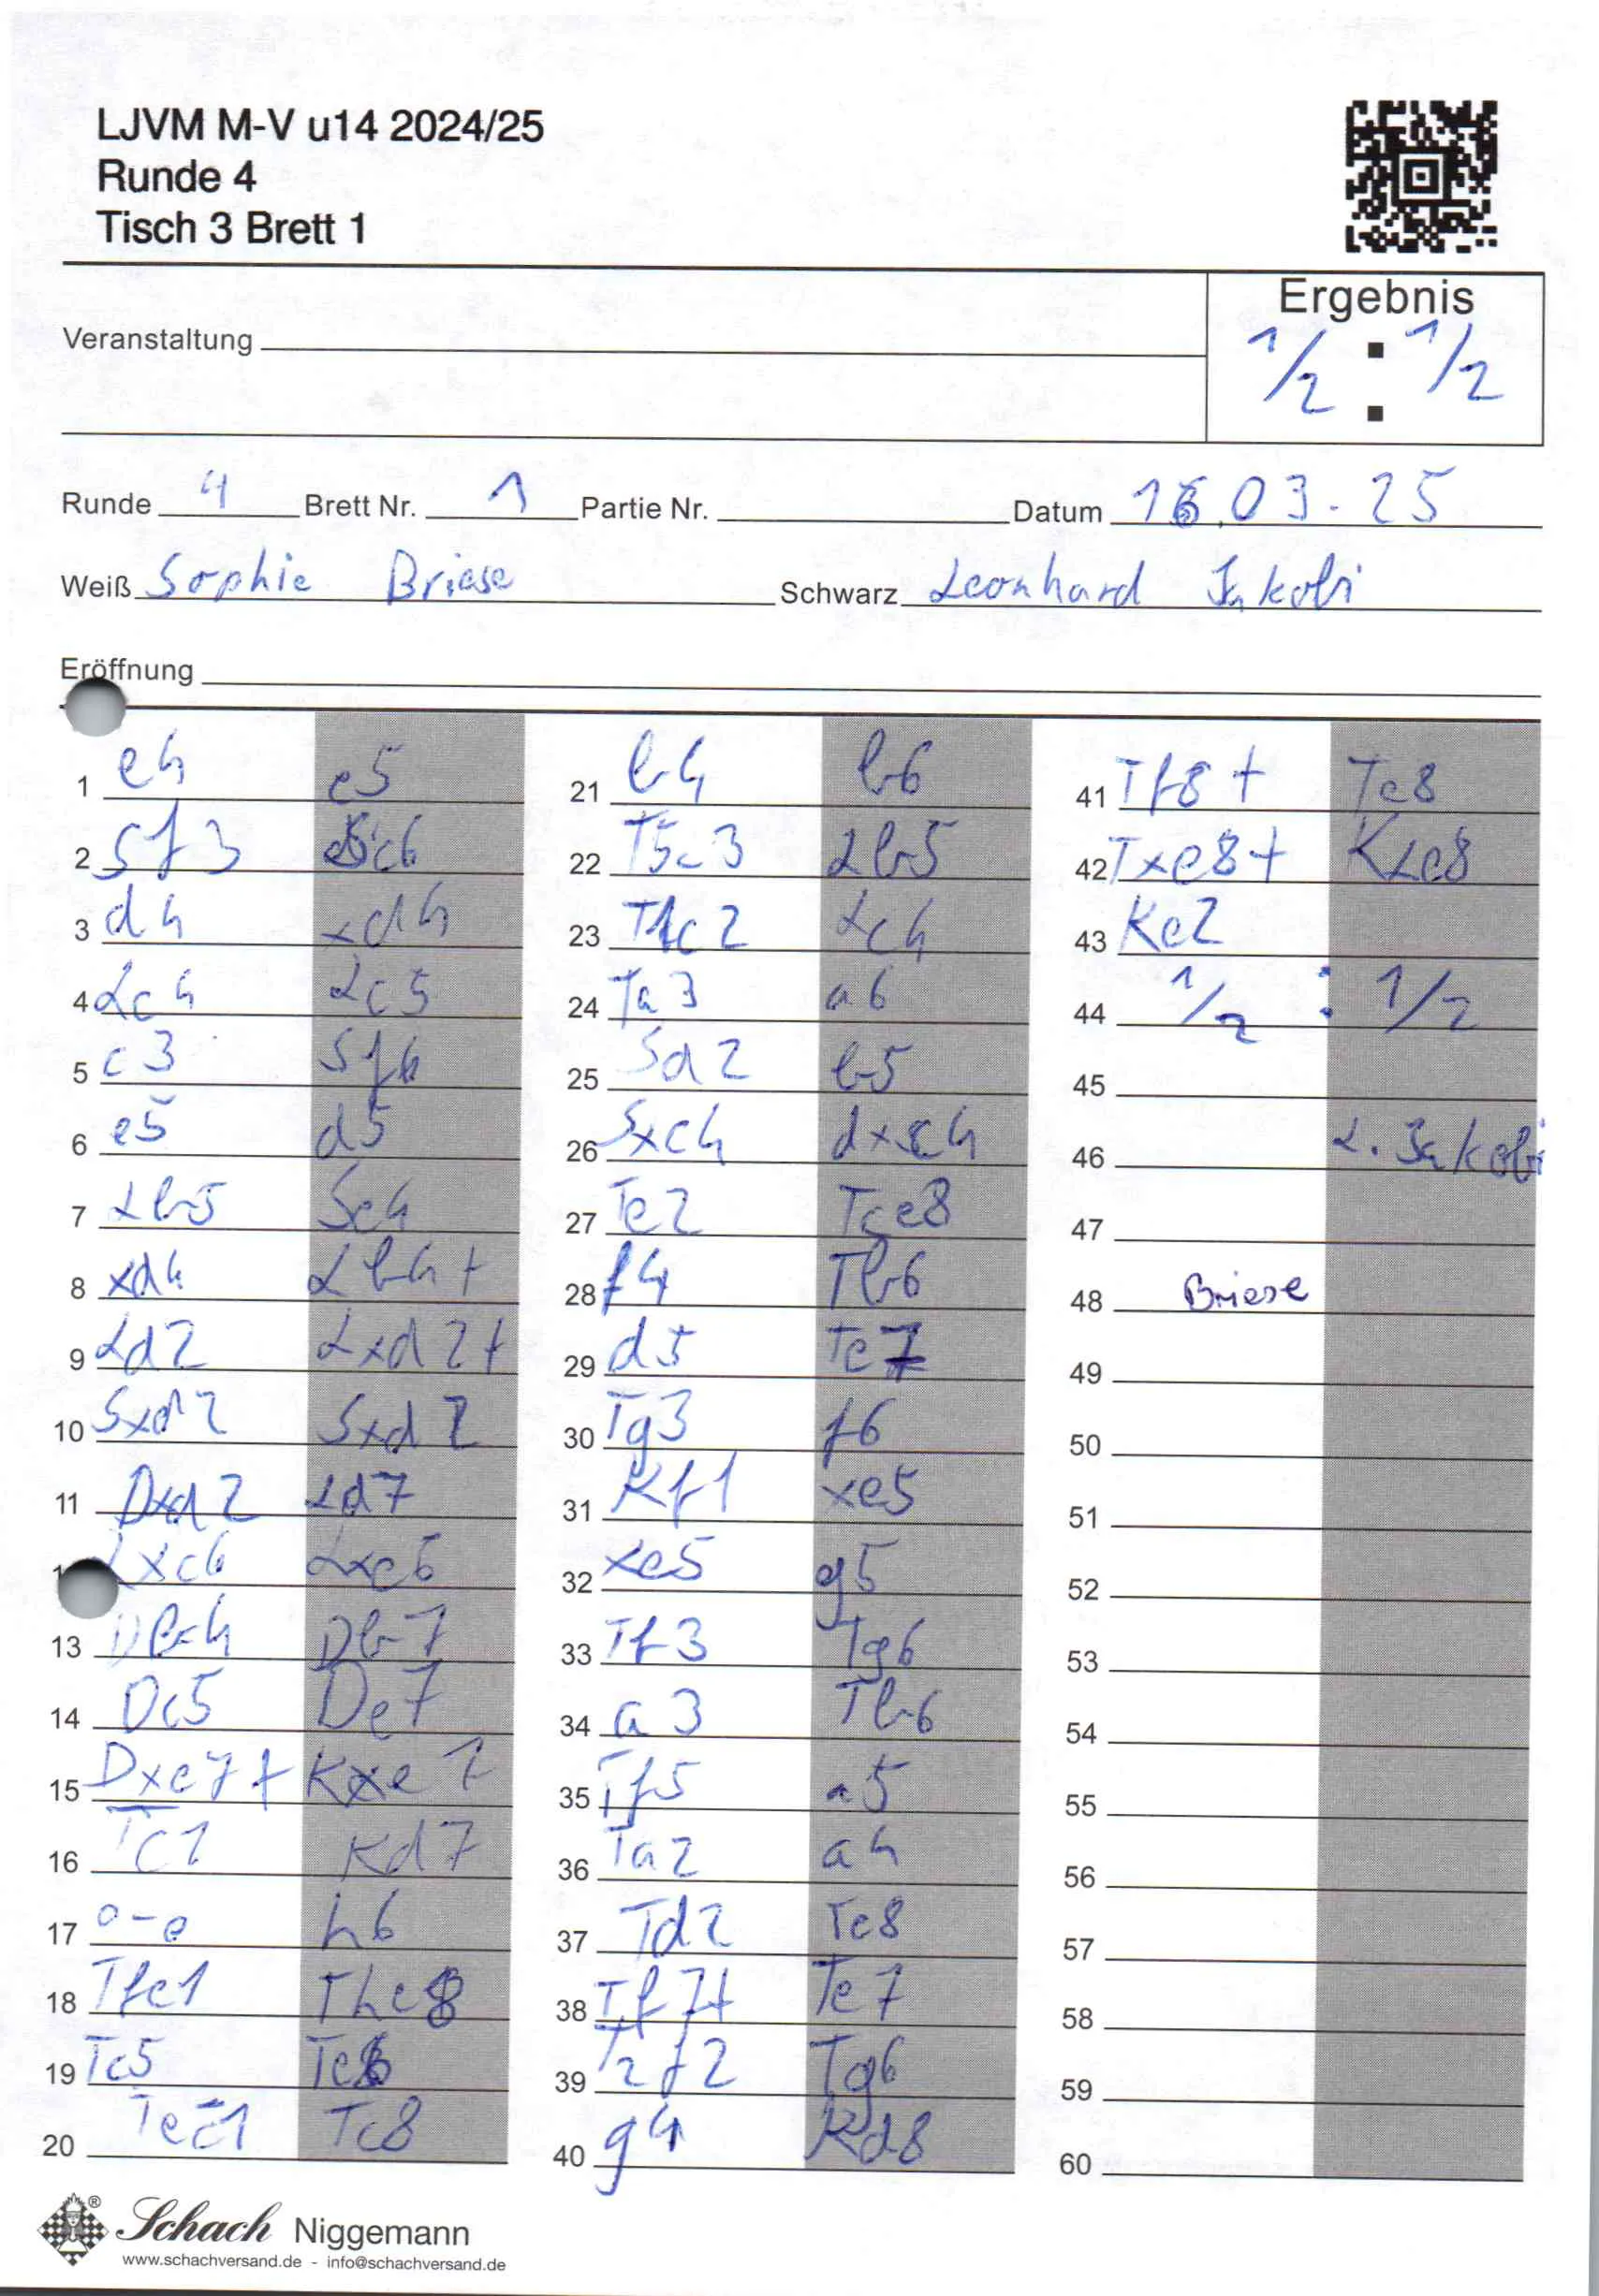 LJVM M-V u14 2024/25
Runde 4
Tisch 3 Brett 1
Ergebnis
1/2 : 1/2
Veranstaltung
Runde 4 Brett Nr. 1 Partie Nr. Datum 16.03.25
Weiß Sophie Briese Schwarz Leonhard Jakobi
Eröffnung
1 e4 e5
2 Sf3 Sc6
3 d4 xd4
4 Lc4 Lc5
5 c3 Sf6
6 e5 d5
7 Lb5 Se4
8 xd4 Lb4+
9 Ld2 Lxd2+
10 Sxd2 Sxd2
11 Dxd2 Ld7
Lxc6 Lxc6
13 Db4 Db7
14 Dc5 De7
15 Dxe7+ Kxe7
16 Tc1 Kd7
17 o-o h6
18 Tfe1 The8
19 Tc5 Te6
20 Tec1 Tc8
21 b4 b6
22 T5c3 Lb5
23 T1c2 Lc4
24 Ta3 a6
25 Sd2 b5
26 Sxc4 dxc4
27 Te2 Tce8
28 f4 Tb6
29 d5 Te7
30 Tg3 f6
31 Kf1 xe5
32 xe5 g5
33 Tf3 Tg6
34 a3 Tb6
35 Tf5 a5
36 Ta2 a4
37 Td2 Te8
38 Tf7+ Te7
39 T2f2 Tg6
40 g4 Kd8
41 Tf8+ Te8
42 Txe8+ Kxe8
43 Ke2
44 1/2 : 1/2
45
46 L. Jakobi
47
48 Briese
49
50
51
52
53
54
55
56
57
58
59
60
Schach Niggemann
www.schachversand.de - info@schachversand.de